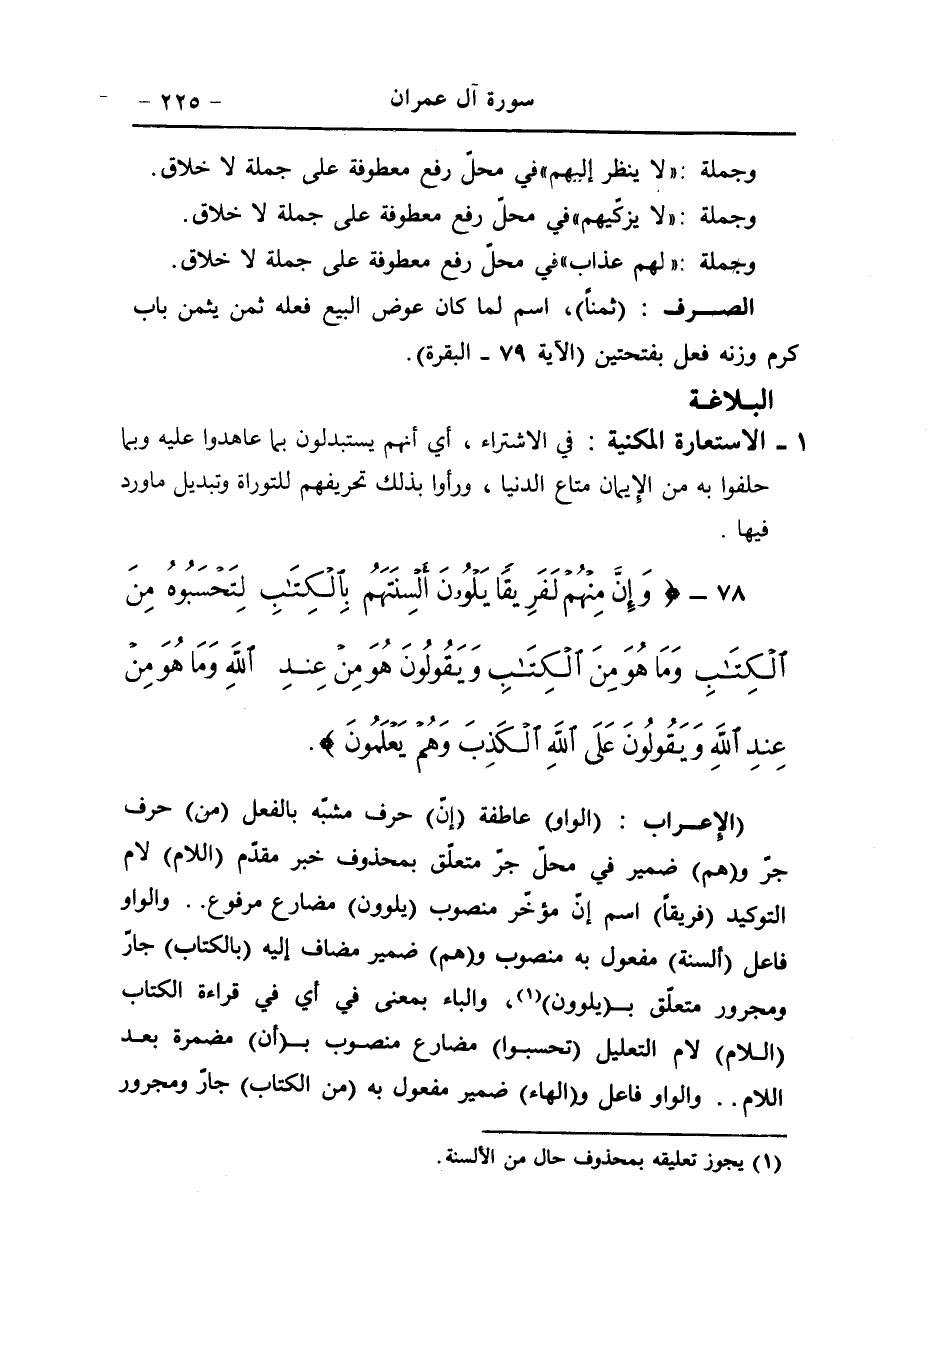 سورة آل عمران - ٢٢٥ -
وجملة :«لا ينظر إليهم»في محلّ رفع معطوفة على جملة لا خلاق.
وجملة :«لا يزكّيهم»في محلّ رفع معطوفة على جملة لا خلاق.
وجملة :«لهم عذاب»في محلّ رفع معطوفة على جملة لا خلاق.
الصـــرف : (ثمناً)، اسم لما كان عوض البيع فعله ثمن يثمن باب
كرم وزنه فعل بفتحتين (الآية ٧٩ - البقرة).
البـلاغـة
١ - الاستعارة المكنية : في الاشتراء ، أي أنهم يستبدلون بما عاهدوا عليه وبما
حلفوا به من الإيمان متاع الدنيا ، ورأوا بذلك تحريفهم للتوراة وتبديل ماورد
فيها .
٧٨ - ﴿ وَإِنَّ مِنْهُمْ لَفَرِيقًا يَلْوُۥنَ أَلْسِنَتَهُم بِٱلْكِتَـٰبِ لِتَحْسَبُوهُ مِنَ
ٱلْكِتَـٰبِ وَمَا هُوَ مِنَ ٱلْكِتَـٰبِ وَيَقُولُونَ هُوَ مِنْ عِندِ ٱللَّهِ وَمَا هُوَ مِنْ
عِندِ ٱللَّهِ وَيَقُولُونَ عَلَى ٱللَّهِ ٱلْكَذِبَ وَهُمْ يَعْلَمُونَ ﴾.
(الإعـــراب : (الواو) عاطفة (إنّ) حرف مشبّه بالفعل (من) حرف
جرّ و(هم) ضمير في محلّ جرّ متعلّق بمحذوف خبر مقدّم (اللام) لام
التوكيد (فريقاً) اسم إنّ مؤخّر منصوب (يلوون) مضارع مرفوع.. والواو
فاعل (ألسنة) مفعول به منصوب و(هم) ضمير مضاف إليه (بالكتاب) جارّ
ومجرور متعلّق بـ(يلوون)(١)، والباء بمعنى في أي في قراءة الكتاب
(الـلام) لام التعليل (تحسبـوا) مضارع منصوب بـ(أن) مضمرة بعـد
اللام.. والواو فاعل و(الهاء) ضمير مفعول به (من الكتاب) جارّ ومجرور
(١) يجوز تعليقه بمحذوف حال من الألسنة.